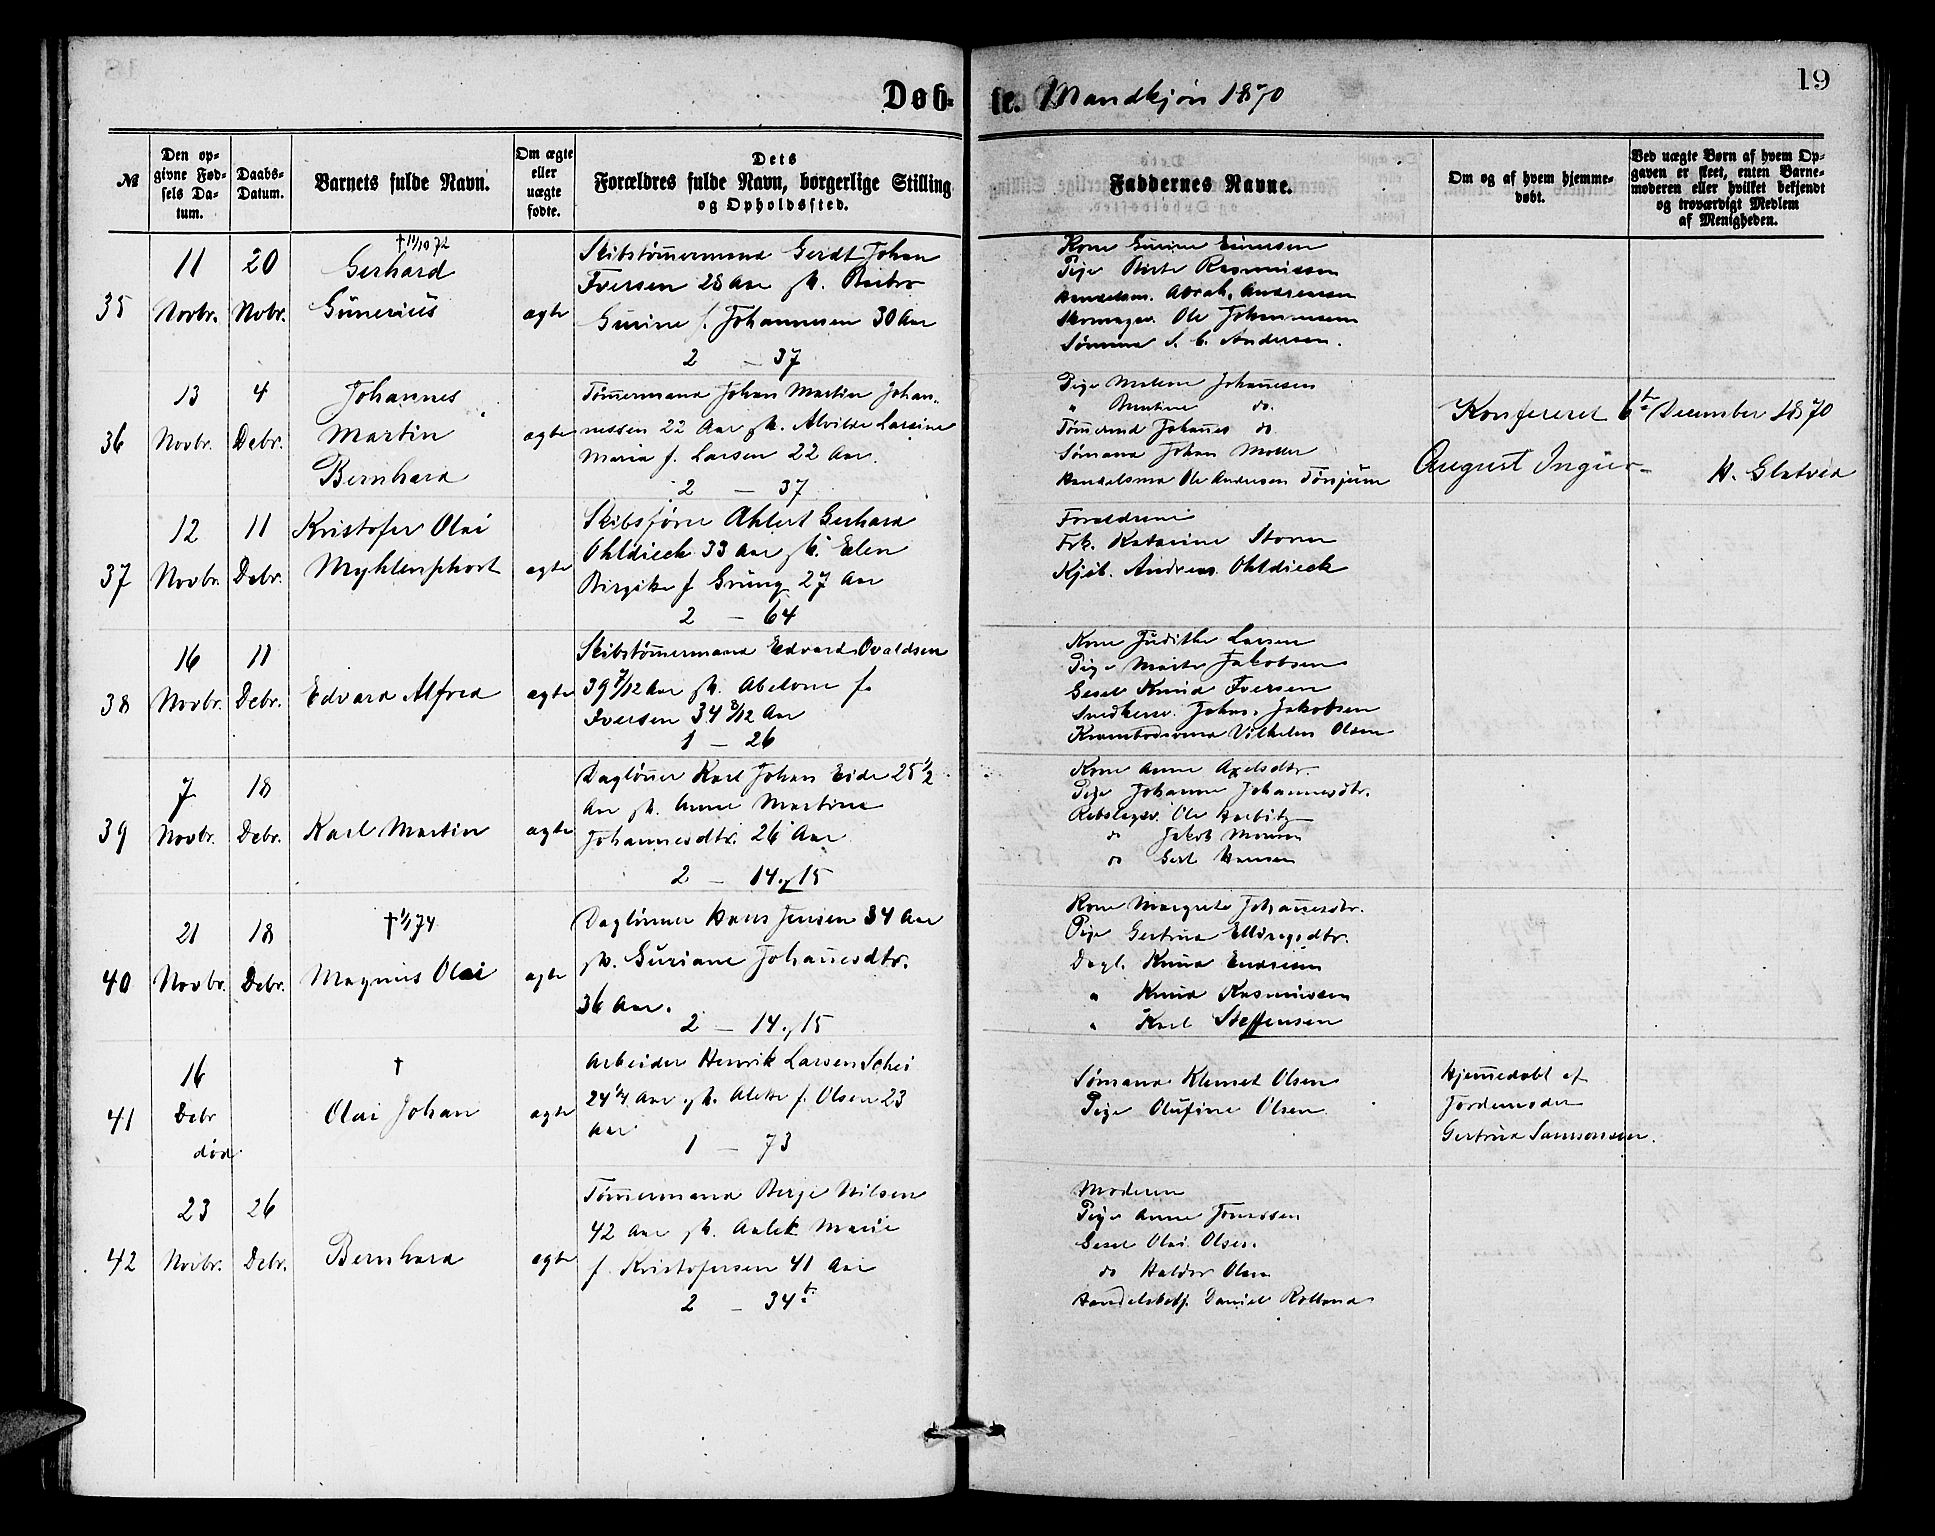 Døb-
te. Mandkjøn 1870
19
№
Den op-
givne Fød-
sels Da-
tum.
Daabs-
Datum.
Barnets fulde Navn.
Om ægte
eller
uægte
fødte.
Dets
Forældres fulde Navn, borgerlige Stilling
og Opholdssted.
Faddernes Navne.
Om og af hvem hjemme-
døbt.
Ved uægte Børn af hvem Op-
gaven er skeet, enten Barne-
moderen eller hvilket bekjendt
og troværdigt Medlem
af Menigheden.
35
11
Novbr.
20
Nobr.
† 11/10 72
Gerhard
Gunerius
ægte
Skibstømermand Gerdt Johan
Iversen 28 Aar
Gurine f. Johannesen 30 Aar
2 — 37
Kone Gurine Einersen
Pige Birte Rasmussen
Handelsm. Abrah. Andreasen
Skomager. Ole Johannesen
Sømand S. C. Andersen.
36
13
Novbr.
4
Debr.
Johannes
Martin
Bernhard
ægte
Tømermand Johan Martin Johan-
nessen 22 Aar & H. Alvilde Larsine
Maria f. Larsen 22 Aar.
2 — 37
Pige Malene Johanesen
" Berntine do.
Tømermd Johanes do
Sømand Johan Moller
Handelsmd Ole Andersen Tørsjum
Konfereret 6te December 1870
August Inguo-
H. Glatved
37
12
Novbr.
11
Debr.
Kristofer Olai
Myhlenphort
ægte
Skibsfører Ahlert Gerhard
Ohldieck 33 Aar & H. Elen
Birgitte f Grung 27 Aar
2 — 64
Forældrene
Frk. Katarine Storm
Kjøb. Andreas Ohldieck
38
16
Novbr.
11
Debr.
Edvard Alfred
ægte
Skibstømermand Edvard Ovaldsen
39 7/12 Aar & H. Abelone f.
Iversen 34 8/12 Aar
1 — 26
Kone Judithe Larsen
Pige Marte Jakobsen
Gesel Knud Iversen
Snedkersv. Johs. Jakobsen
Krambodsvend Vilhelm Olsen
39
7
Novbr.
18
Debr.
Karl Martin
ægte
Dagløner Karl Johan Eide 25 1/2
Aar & H. Anne Martina
Johannesdtr. 26 Aar
2 — 14 & 15
Kone Anne Axelsdtr.
Pige Johanne Johannesdtr.
Rebslager Ole
do Jakob Monsen
do Gert Hansen
40
21
Novbr.
18
Debr.
† 1/1 74
Magnus Olai
ægte
Dagløner Hans Jensen 34 Aar
& H. Guriane Johanesdtr.
36 Aar.
2 — 14 & 15
Kone Margrete Johanesdtr.
Pige Gertrud Ellingsdtr.
Dagl. Knud Endresen
" Knud Rasmussen
" Karl Steffensen
41
16
Debr
død
†
Olai Johan
ægte
Arbeider Henrik Larsen Schei
24 1/4 Aar & H. Alette f. Olsen 23
Aar
1 — 73
Sømand Klemet Olsen
Pige Olufine Olsen
Hjemedøbt af
Jordemoder
Gertrud Samsonsen.
42
23
Novbr.
26
Debr.
Bernhard
ægte
Tømermand Berge Nilsen
42 Aar & H. Aalet Marie
f. Kristofersen 41 Aar
2 — 34 b.
Moderen
Pige Anne Jonassen
Gesel Olai Olsen.
do Haldor Olsen
Handelsbetj. Daniel Rolland